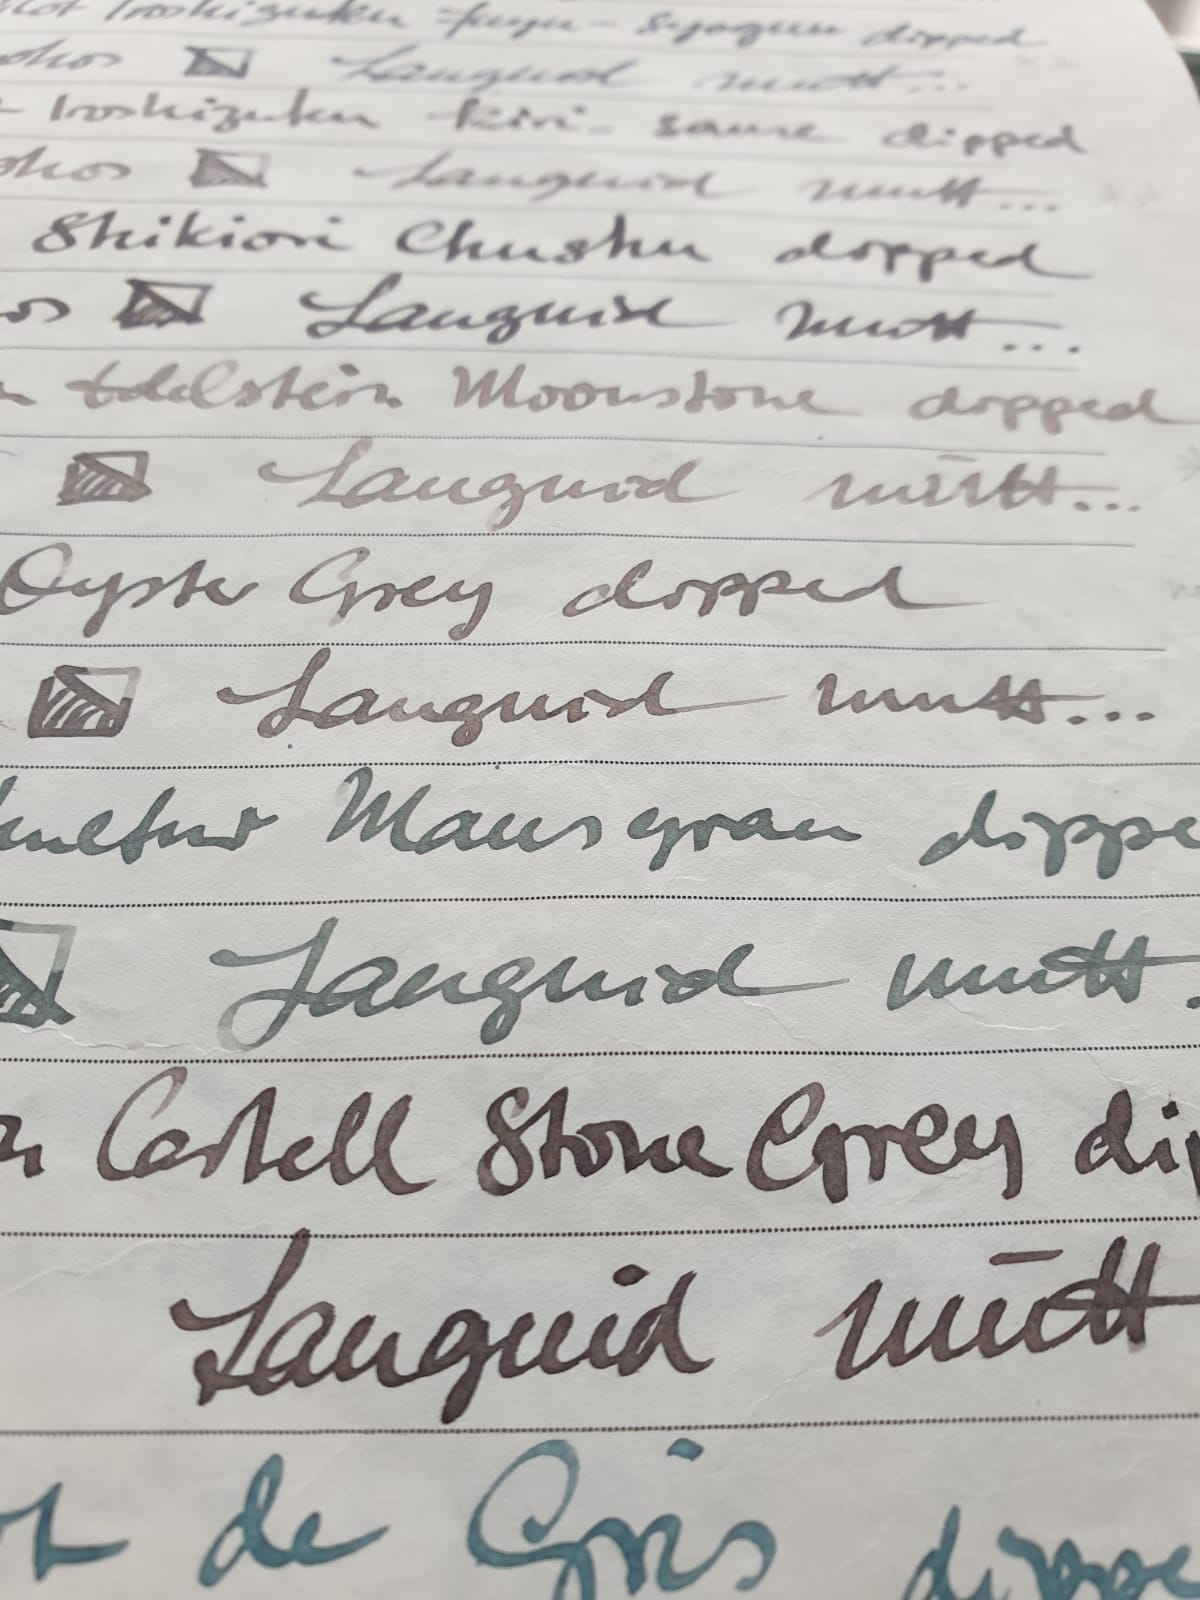 Iroshizuku fuyu-syogun dipped
Languid mutt...
Iroshizuku kiri-same dipped
Languid mutt...
Shikiori Chushu dipped
Languid mutt...
Edelstein Moonstone dipped
Languid mutt...
Oyster Grey dipped
Languid mutt...
Mausgrau dippe
Languid mutt.
Castell Stone Grey dip
Languid mutt
de Gris dippe